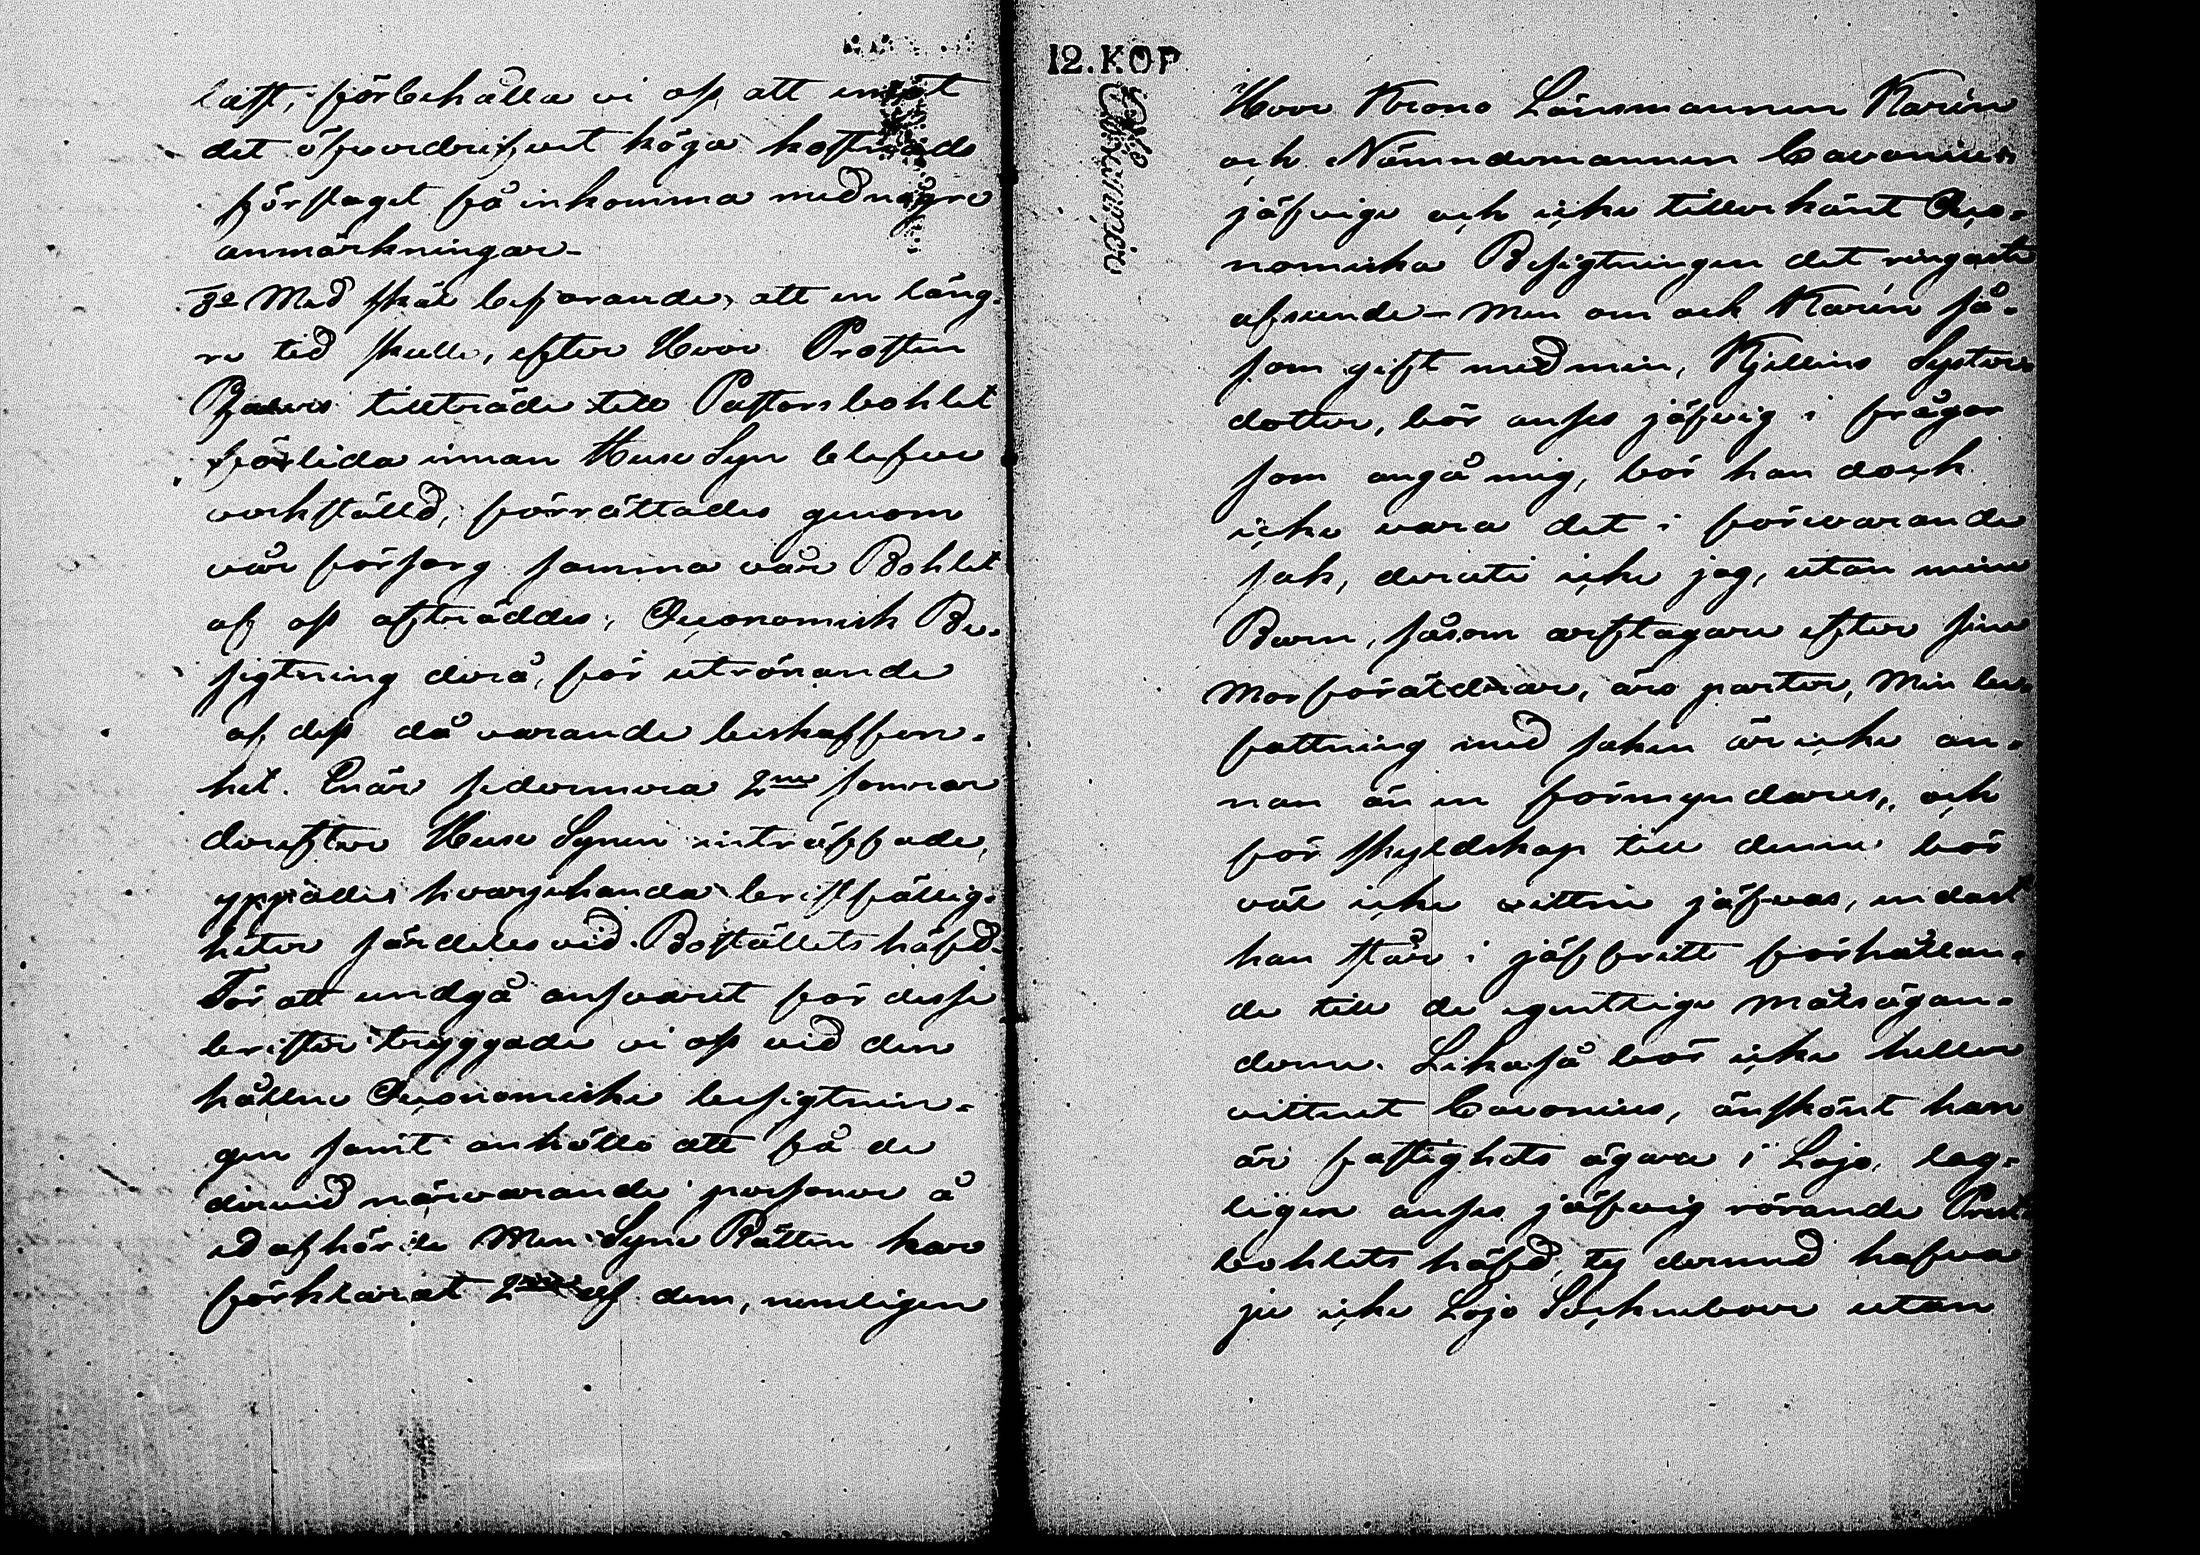 läst, förbehålla vi oss att emot
det öfverdrifvet höga kostnads
förslaget få inkomma med några
anmärkningar_
3o Med skäl befarande, att en läng-
re tid skulle, efter Herr Prosten
tillträde till Pastorsbohlet
förlida innan Huse Syn blefve
verkställd, förrättades genom
vår försorg samma vår Bohlet
af oss afträddes, Oeconomisk Be-
sigtning derå, för utrönande
af dess då varande beskaffen-
het. Enär sedermera 2ne somrar
derefter Huse Synen inträffade,
yppades hvarjehanda bristfällig-
heter särdeles vid Boställets häfd.
För att undgå ansvaret för desse
brister tryggade vi oss vid den
hållne Oeconomiske besigtnin-
gen samt anhöllo att få de
dervid närvarande personer å
ed afhörde Men Syne Rätten har
förklarat 2ne af dem, nemligen
12. KOP
Herr Krono Länsmannen Karén
och Nämndemannen Cavonius
jäfvige och icke tillerkänt Oeco-
nomiska Besigtningen det ringaste
afseende_ Men om ock Karén så-
som gift med min, Kjellins Syster
dotter, bör anses jäfvig i frågor
som angå mig, bör han dock
icke vara det i förevarande
sak, deruti icke jag, utan mine
Barn, såsom arftagare efter sine
Morföräldrar, äro parter, Min be-
fattning med saken är icke an-
nan än en förmyndares, och
för skyldskap till denne bör
väl icke vittne jäfvas, endast
han står i jäffritt förhållan-
de till de egentlige Målsägan-
derne. Likaså bör icke heller
vittnet Cavonius, änskönt han
är fastighets ägare i Lojo, lag-
ligen anses jäfvig rörande Prest-
bohlets häfd, ty dermed hafva
ju icke Lojo Sockneboer utan